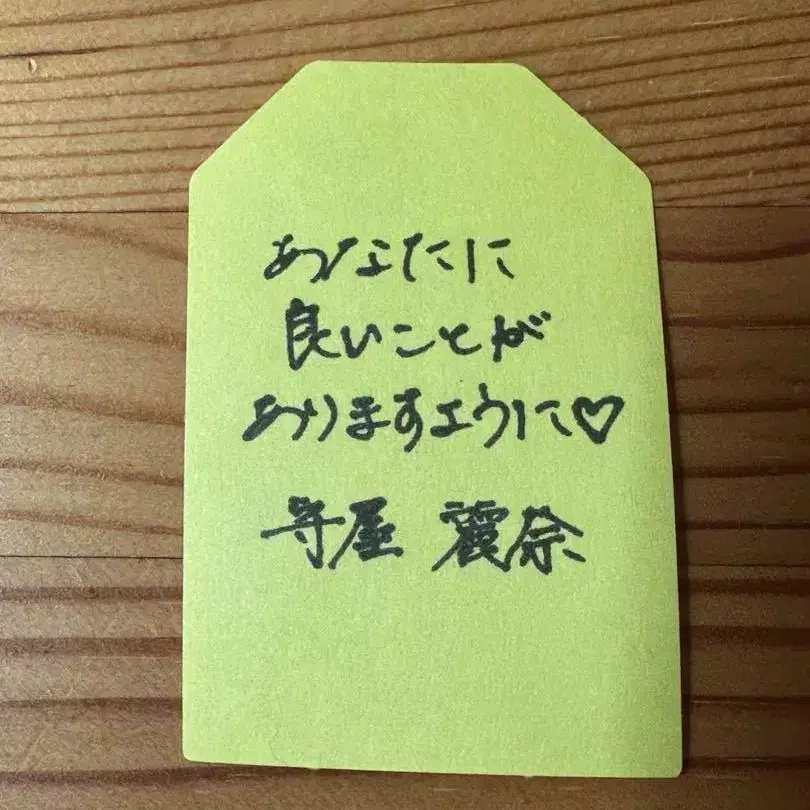 あなたに
良いことが
ありますように♡
守屋 麗奈